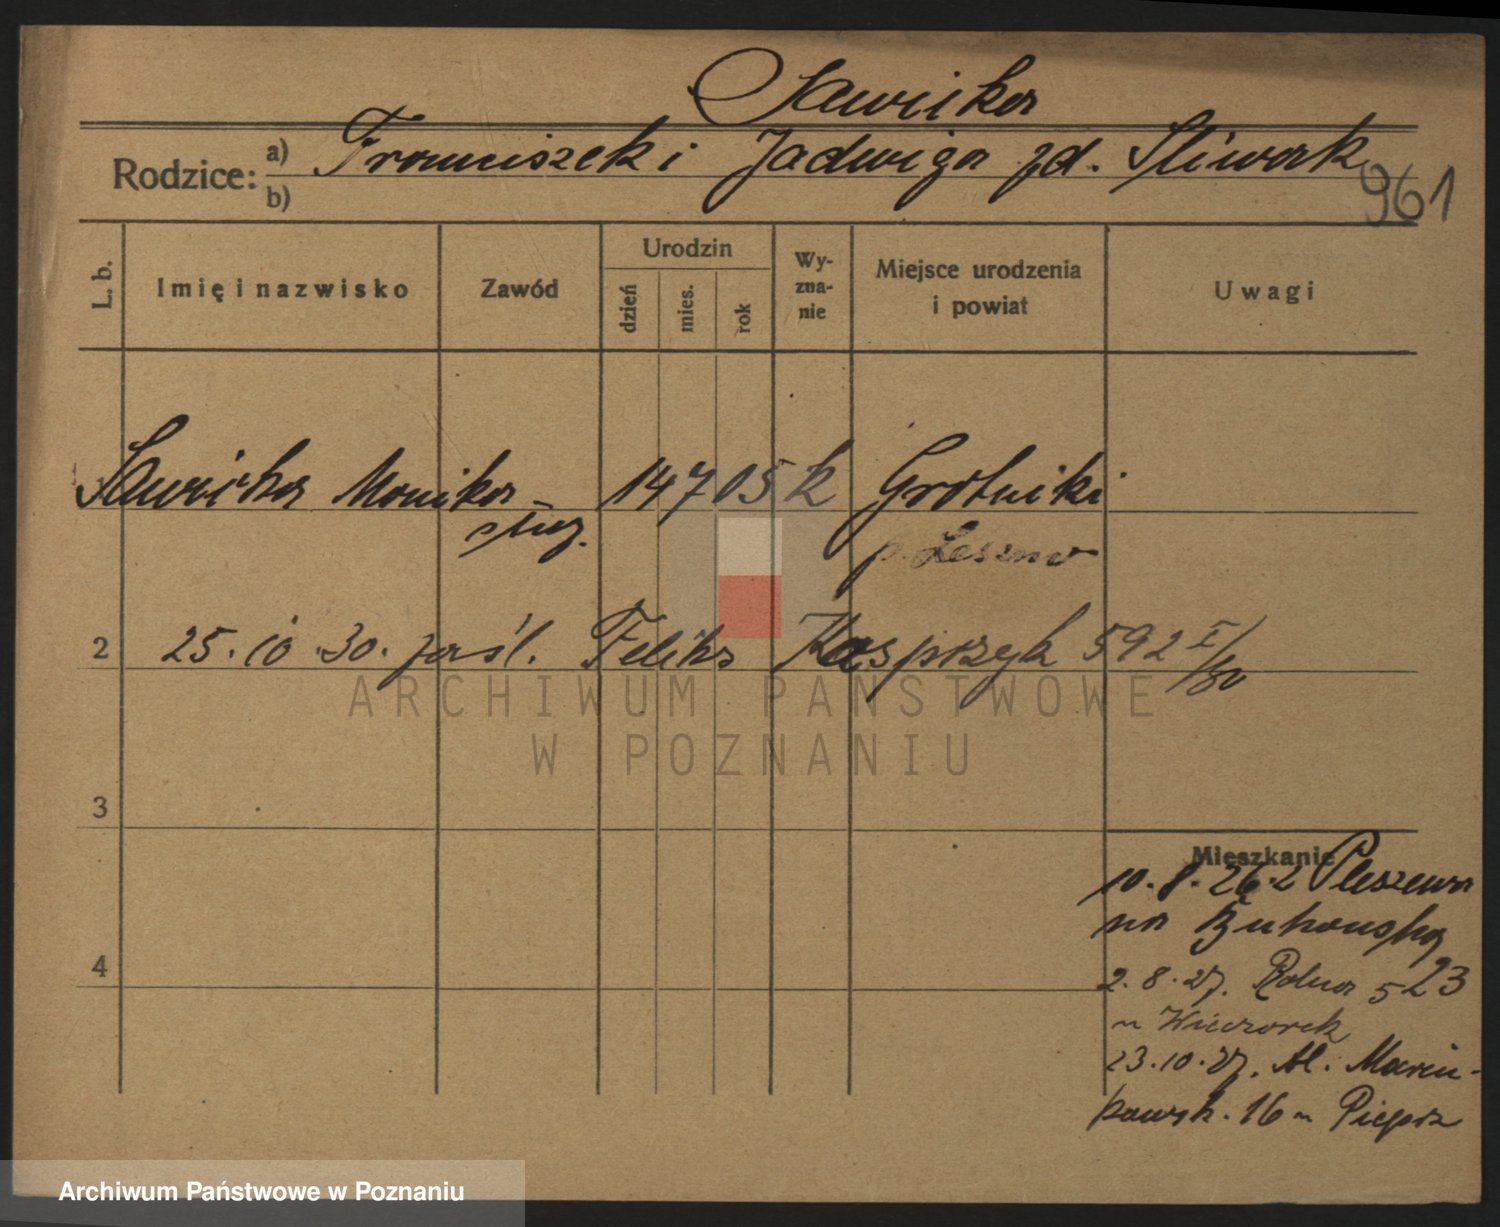 Sawicka
Rodzice: a) Franciszek i Jadwiga zd. Śliwak
b)
961
L. b.
Imię i nazwisko
Zawód
Urodzin
dzień
mies.
rok
Wy-
zna-
nie
Miejsce urodzenia
i powiat
Uwagi
Sawicka Monika 14 7 05 k Grotniki
służ.
p. Leszno
2 25.10.30. zaśl. Feliks Kasprzyk 592 I/30
ARCHIWUM PAŃSTWOWE
W POZNANIU
3
4
Mieszkanie
10.8.26. z Pleszewa
na Bukowską
2.8.27. Polna 5 23
u Wieczorek
23.10.27. Al. Marcin-
kowsk. 16 u
Archiwum Państwowe w Poznaniu